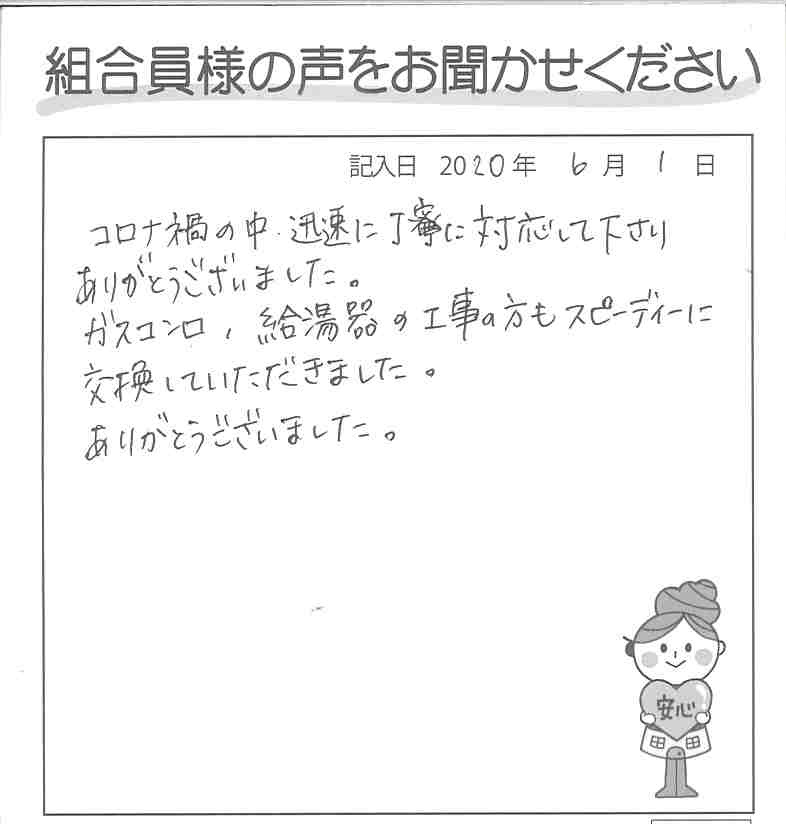 組合員様の声をお聞かせください
記入日 2020年 6月 1日
コロナ禍の中、迅速に丁寧に対応して下さり
ありがとうございました。
ガスコンロ、給湯器の工事の方もスピーディーに
交換していただきました。
ありがとうございました。
安心